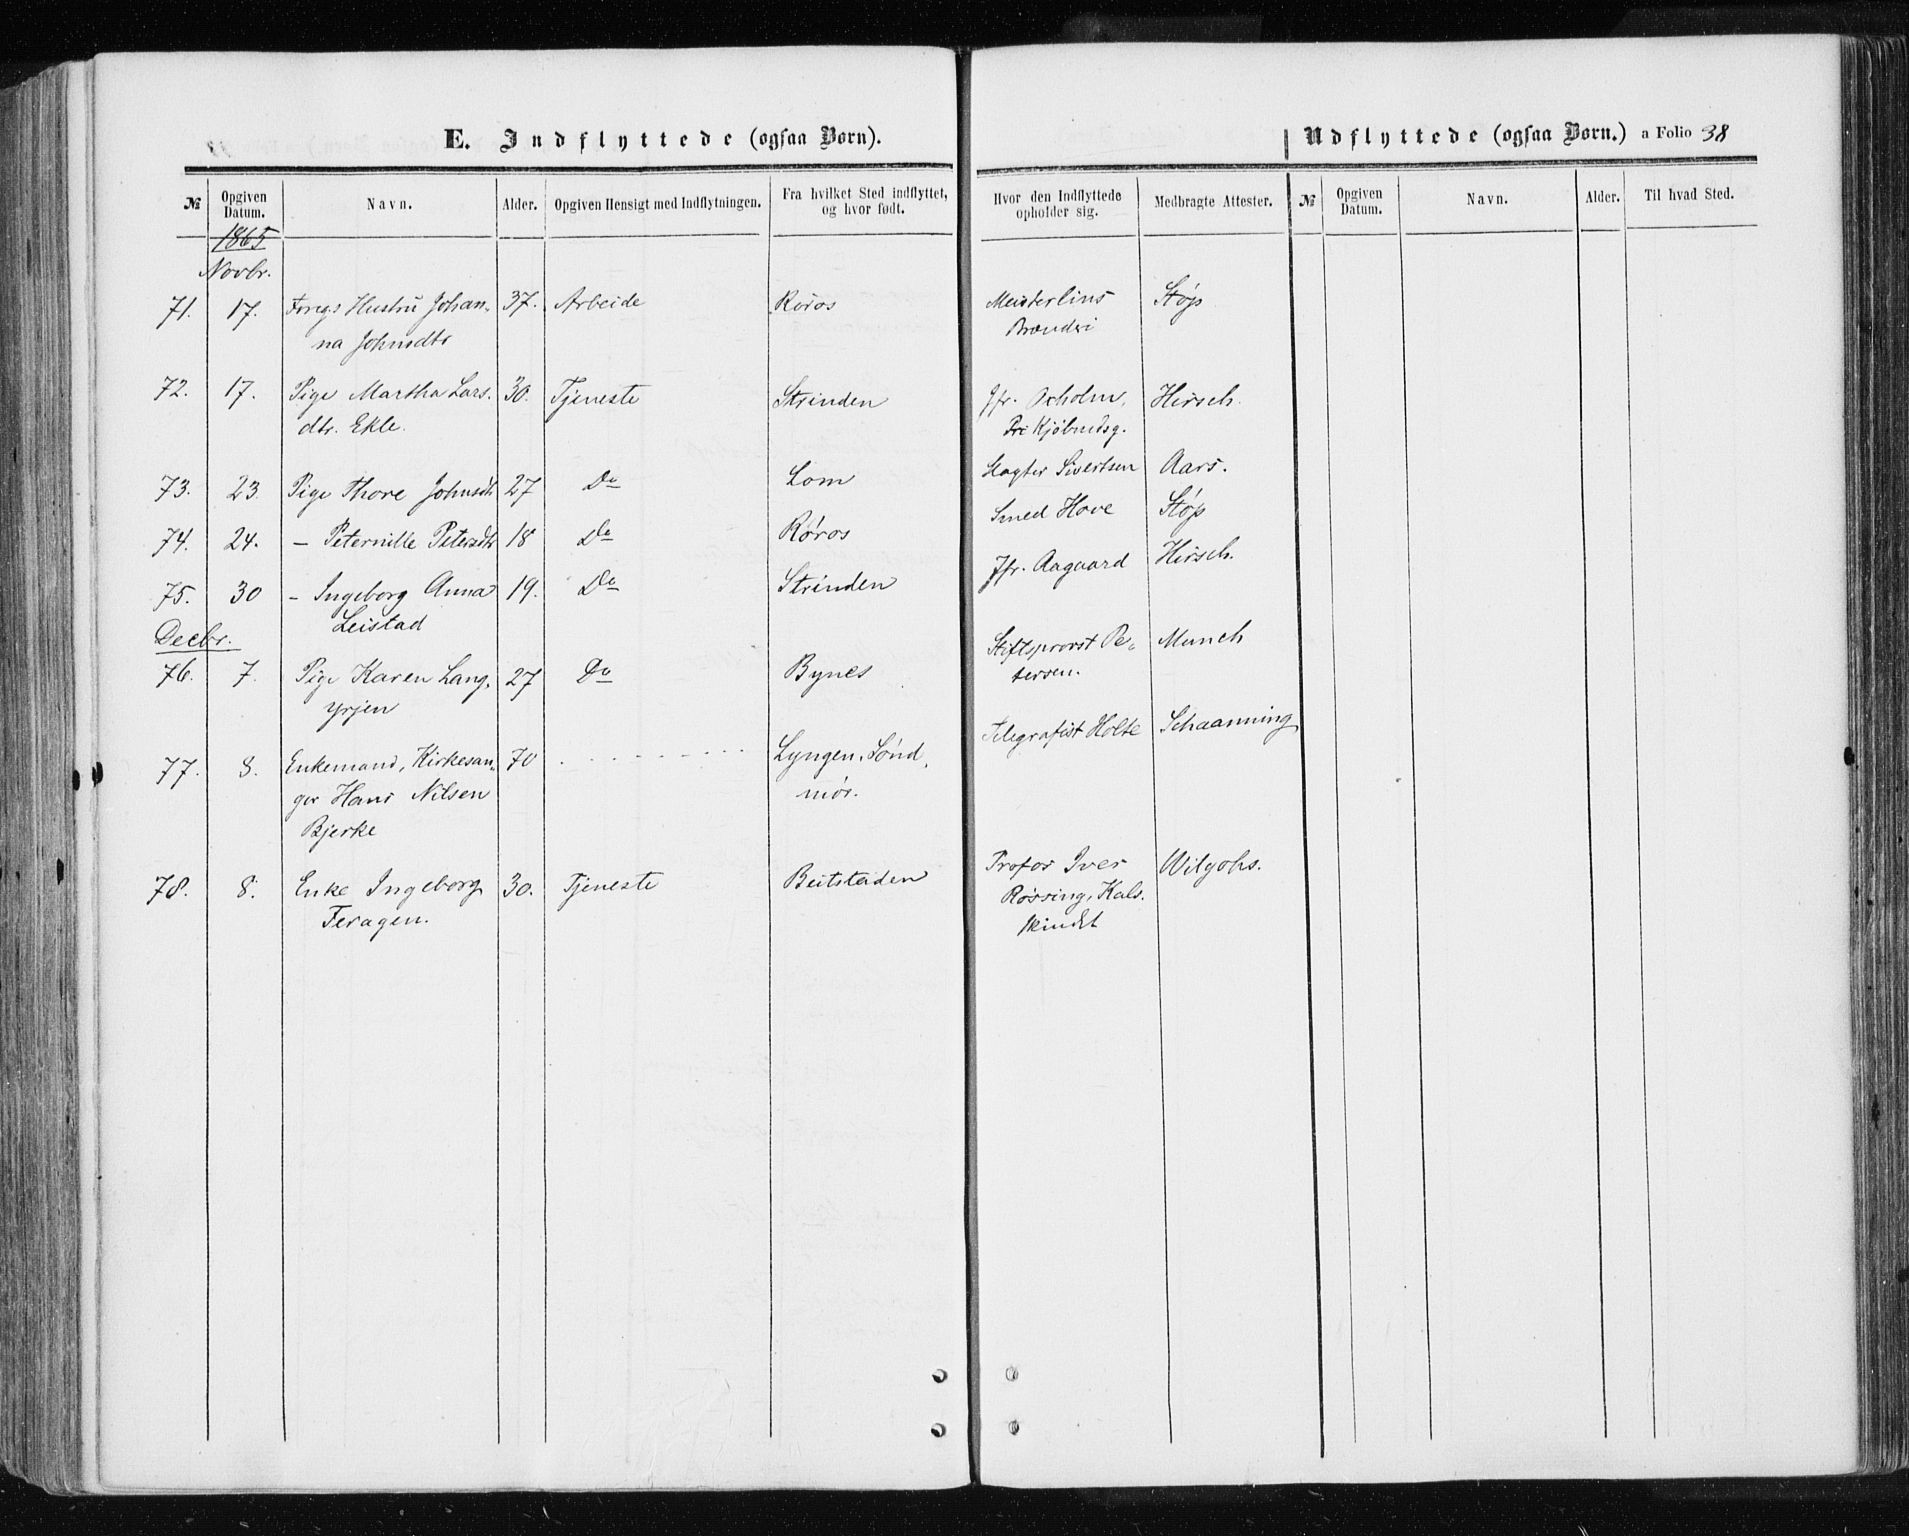 E. Indflyttede (ogsaa Børn).
Udflyttede (ogsaa Børn.) a Folio 38
№ Opgiven Datum. Navn. Alder. Opgiven Hensigt med Indflytningen. Fra hvilket Sted indflyttet, og hvor født. Hvor den Indflyttede opholder sig. Medbragte Attester. № Opgiven Datum. Navn. Alder. Til hvad Sted.
1865
Novbr.
71. 17. Foregs Hustru Johan- 37. Arbeide Røros Meisterlins Støp
na Johnsdtr Brænderi
72. 17. Pige Martha Lars- 30. Tjeneste Strinden Jfr. Oxholm, Hirsch.
dtr. Ekle. Kjøbmdsg.
73. 23 Pige Thore Johnsdtr 27 Do Lom Slagter Sivertsen Aars.
74. 24. – Peternille Petersdtr 18 Do Røros Smed Hove Støp
75. 30 – Ingeborg Anna 19. Do Strinden Jfr. Aagaard Hirsch.
Leistad
Decbr.
76. 7. Pige Karen Lang- 27 Do Bynes Stiftsprovst Pe- Munch
yrjen tersen.
77. 8. Enkemand, Kirkesan- 70 Lyngen, Sønd- Telegrafist Holte Schaanning
ger Hans Nilsen mør.
Bjerke
78. 8. Enke Ingeborg 30. Tjeneste Beitstaden Profos Iver Wilgohs.
Feragen. Røssing, Kalv-
skindet